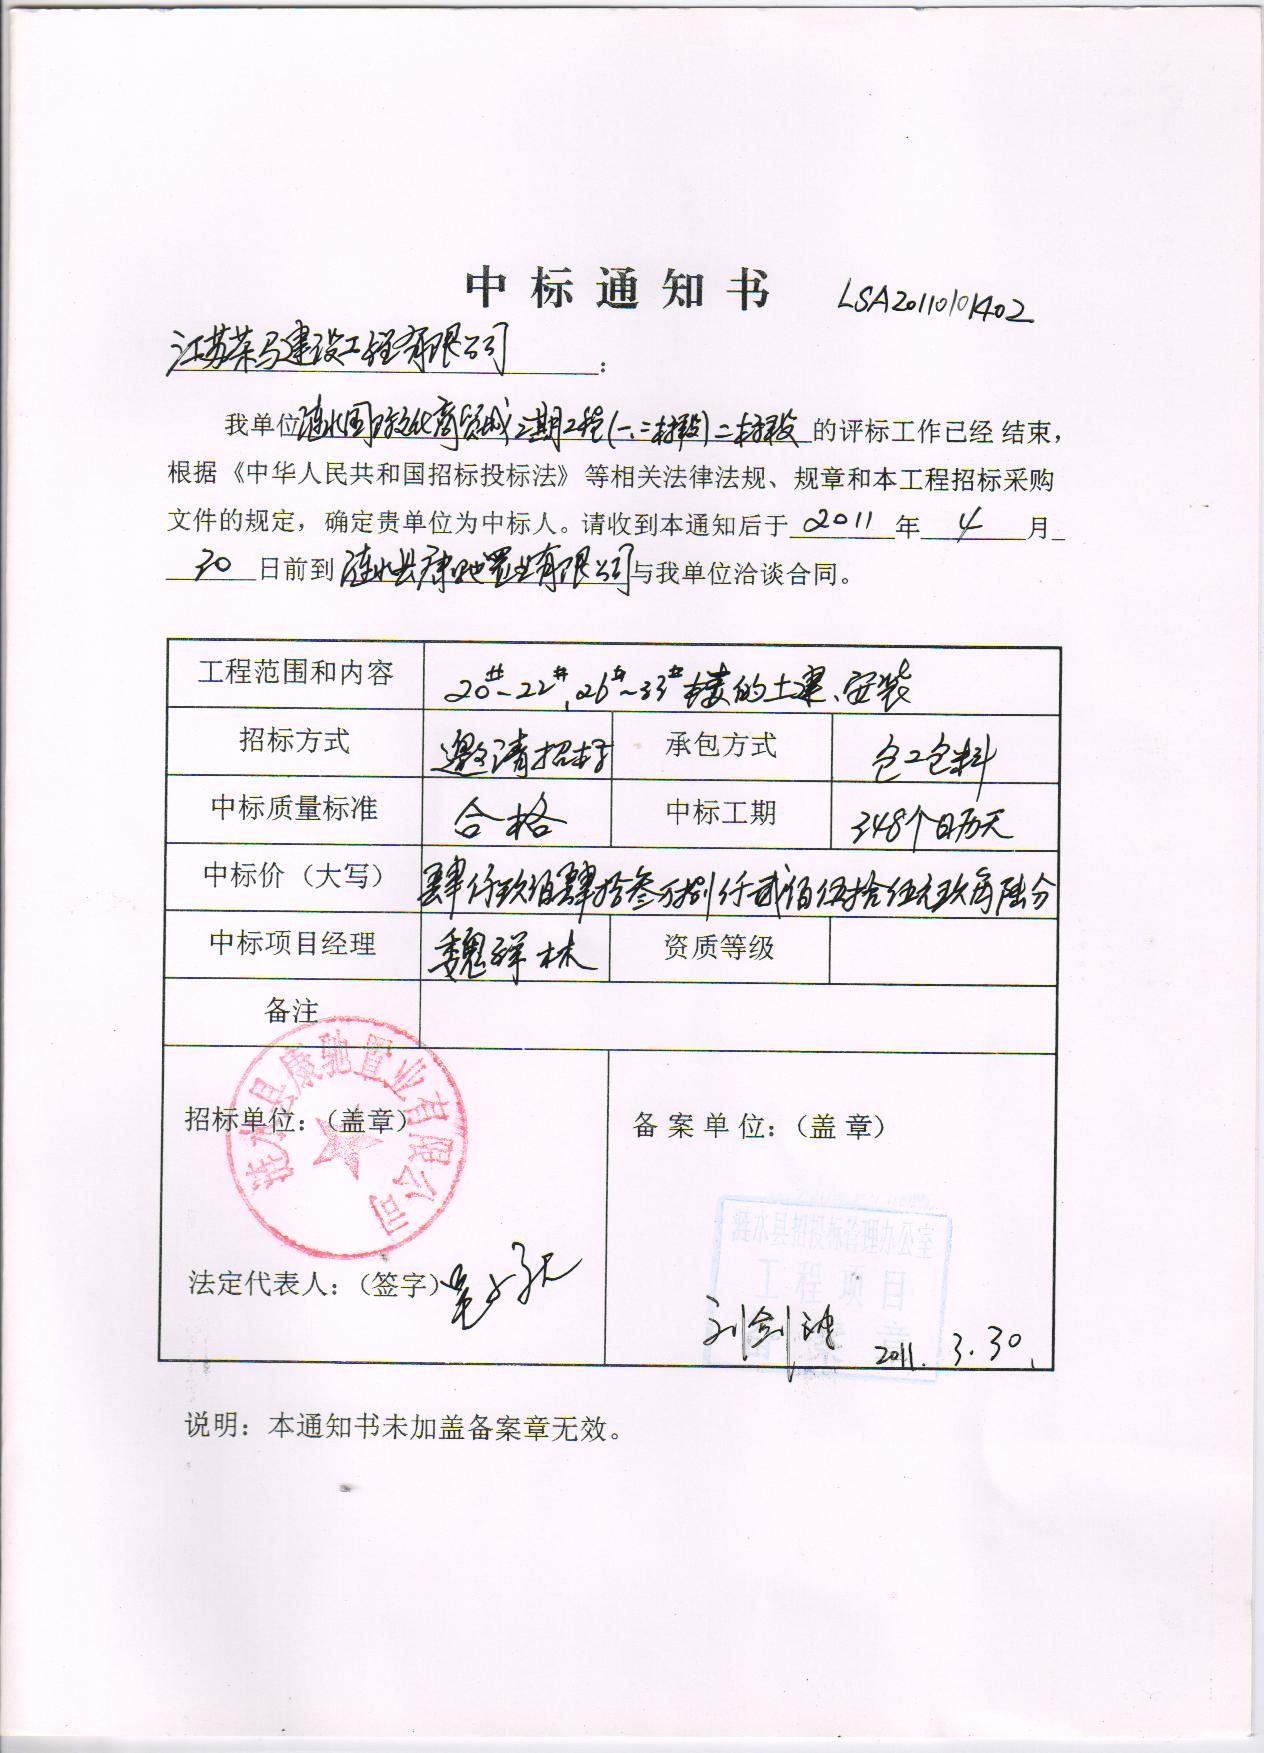 中标通知书 LSA20110101402
江苏茶马建设工程有限公司：
我单位涟水国际文化商贸城二期工程(一、二标段)二标段的评标工作已经结束，
根据《中华人民共和国招标投标法》等相关法律法规、规章和本工程招标采购
文件的规定，确定贵单位为中标人。请收到本通知后于2011年4月
30日前到涟水县康驰置业有限公司与我单位洽谈合同。
工程范围和内容 20#~22#、26#~33#楼的土建、安装
招标方式 邀请招标 承包方式 包工包料
中标质量标准 合格 中标工期 348个日历天
中标价（大写） 肆仟玖佰肆拾叁万捌仟贰佰伍拾伍元玖角陆分
中标项目经理 魏祥林 资质等级
备注
涟水县康驰置业有限公司
招标单位：（盖章） 备案单位：（盖章）
涟水县招投标管理办公室
工程项目
法定代表人：（签字）
备案章
2011.3.30.
说明：本通知书未加盖备案章无效。